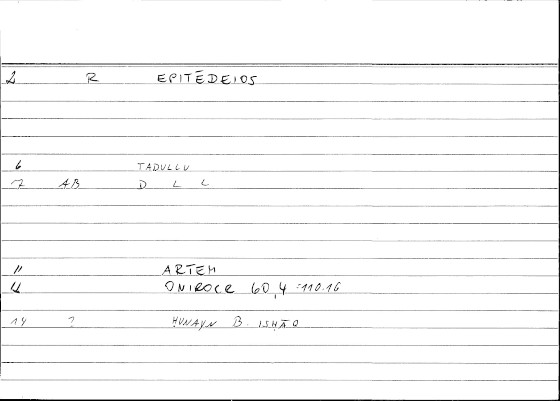 2 R EPITĒDEIOS
6 TADULLU
7 AB D L L
11 ARTEM
12 ONIROCR 60,4 = 110.16
14 ? HUNAYN B. ISHĀQ